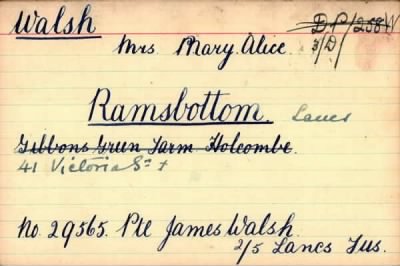 Walsh D.P/258W
Mrs Mary Alice 3/D/
Ramsbottom. Lancs
Gibbons Green Farm Holcombe.
41 Victoria St
No. 29565. Pte James Walsh.
2/5 Lancs Fus.